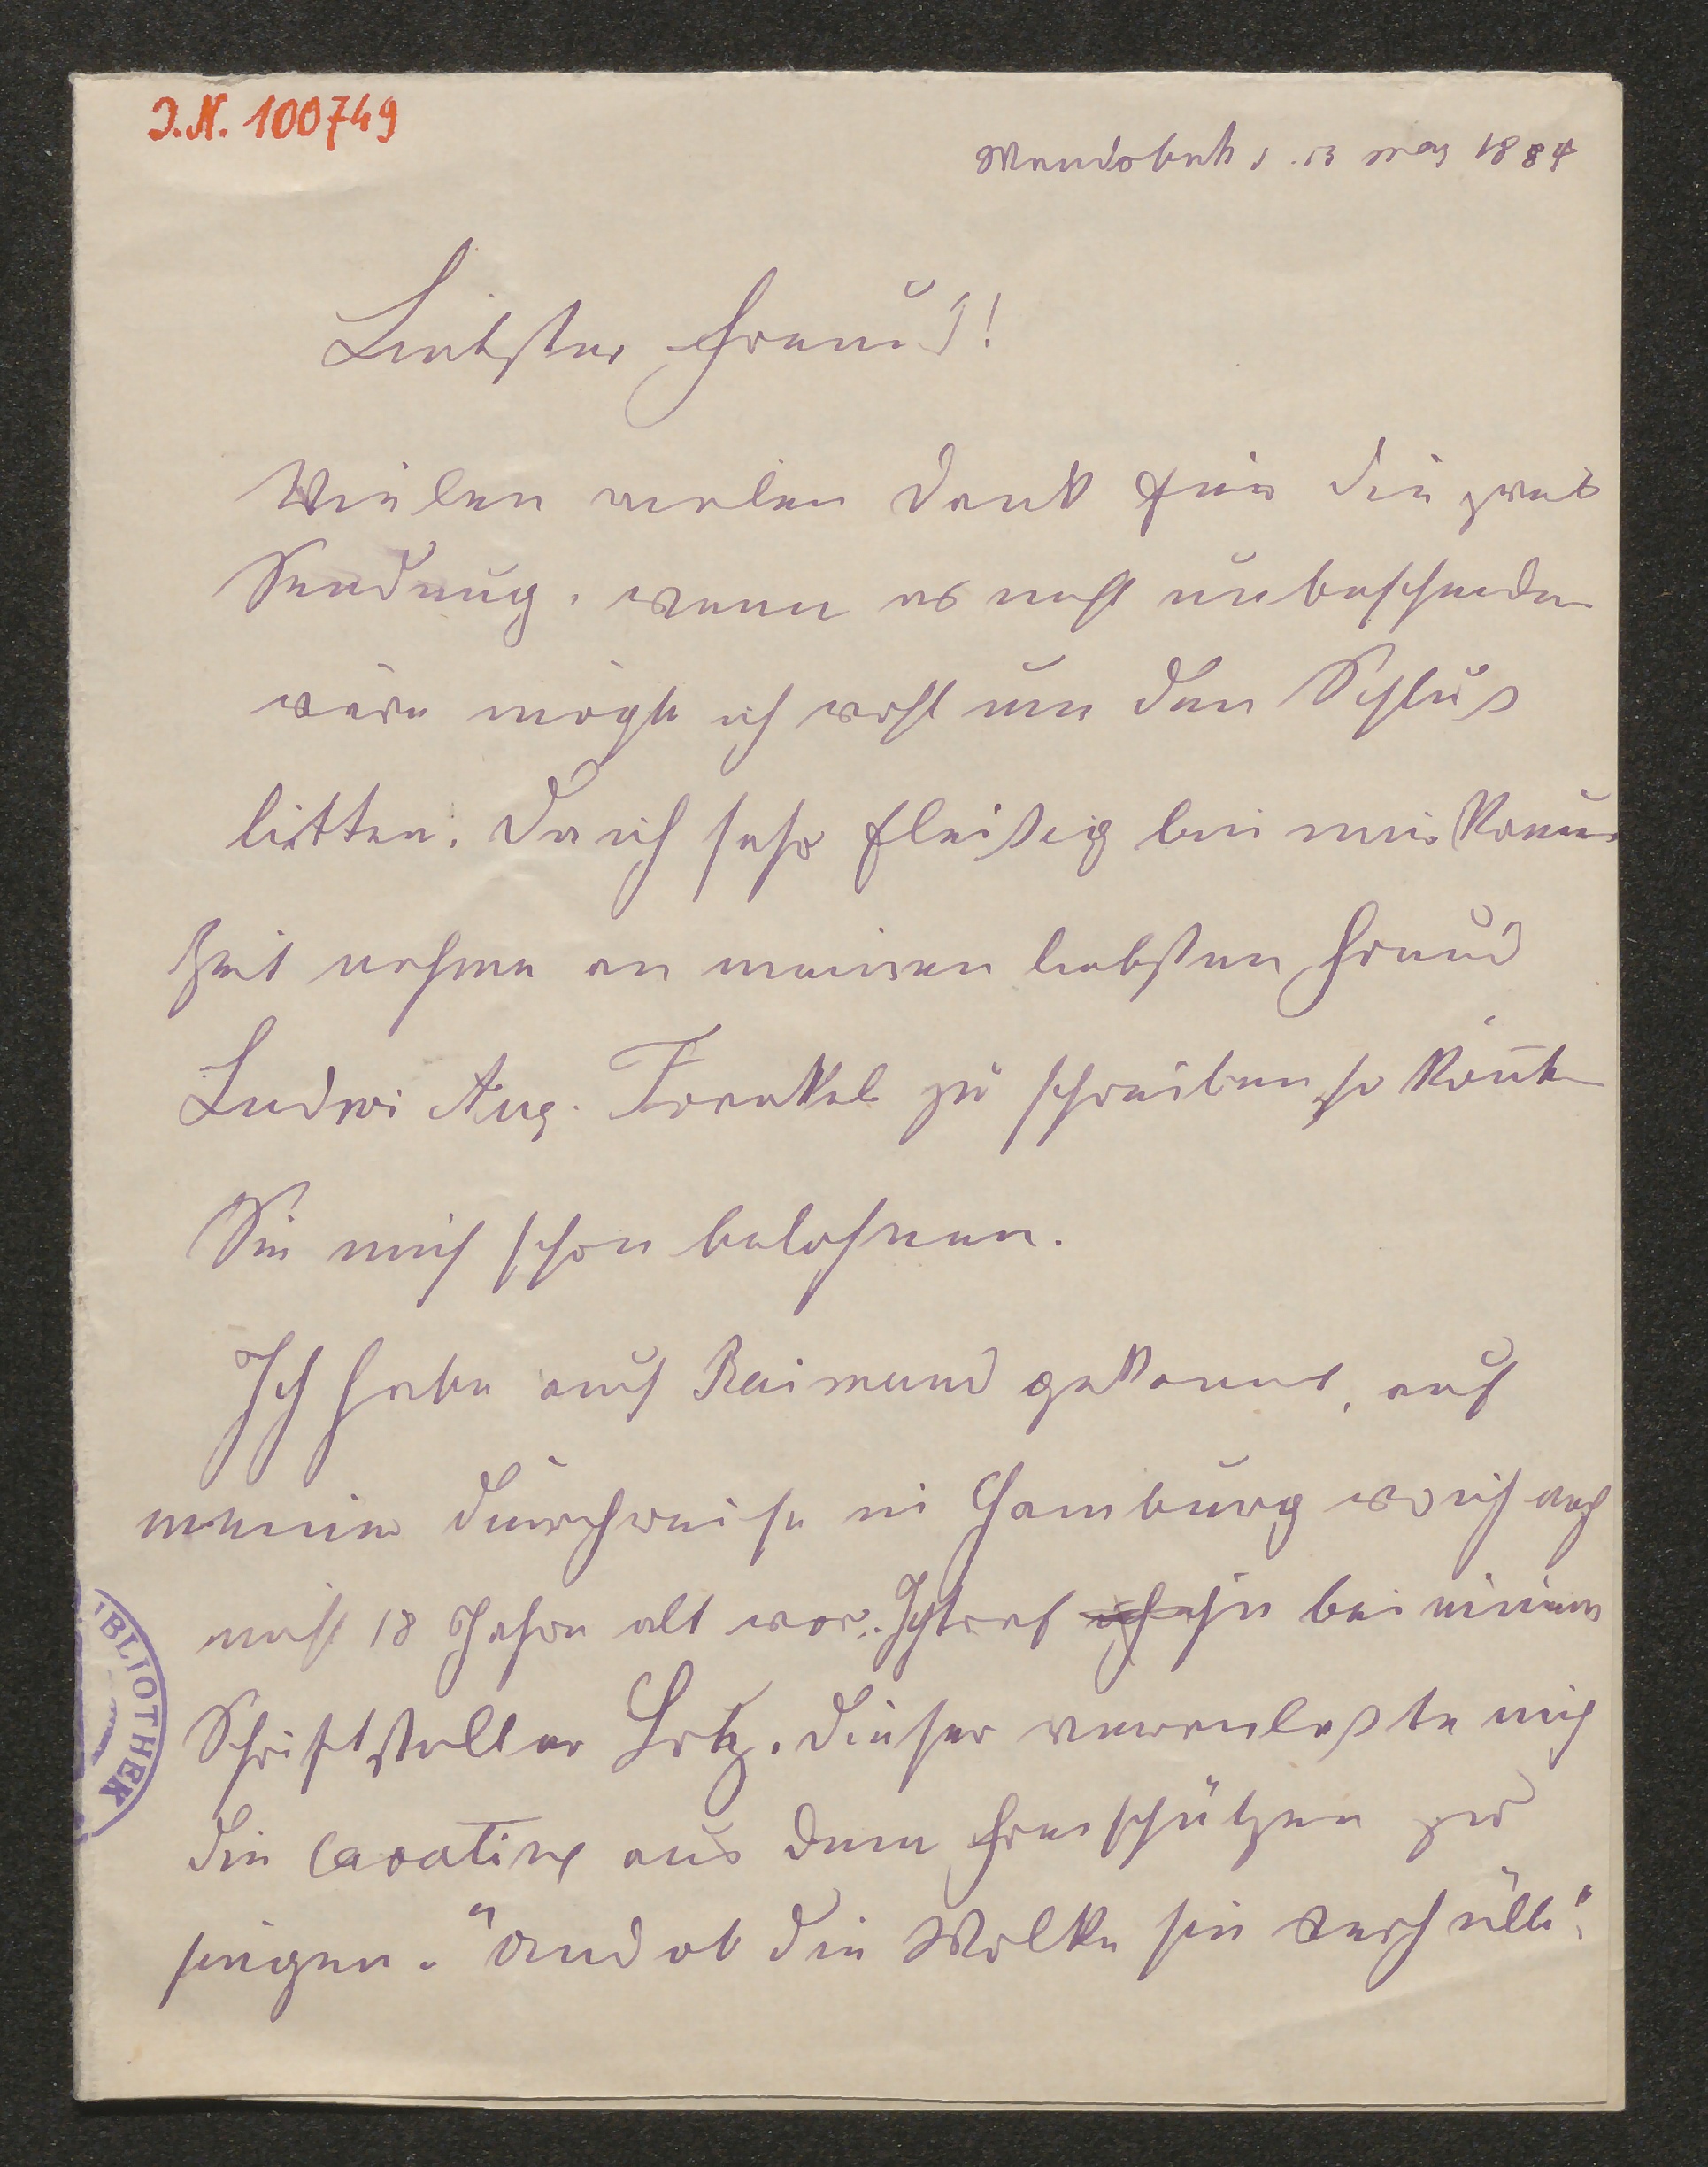 I.N. 100749
Wandsbek, 13 May 1884
Liebster Freund!
Vielen vielen Dank für die zweite
Sendung, wenn es nicht unbescheiden
wäre mögte ich wohl um den Schluß
bitten. Da ich sehr fleißig bin mir kaum
Zeit nehme an meinen liebsten Freund
Ludwi Aug. Frankel zu schreiben, so könten
Sie mich schon belohnen.
Ich habe auch Raimund gekannt, auf
meiner Durchreise in Hamburg wo ich noch
nicht 18 Jahre alt war. Ich traf ihn bei einem
Schriftsteller Lotz. Dieser veranlaßte mich
die Cavatine aus dem Freischützen zu
singen. "Und ob die Wolke sie verhülle".
BIBLIOTHEK